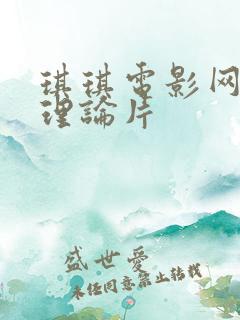 琪琪電影网
理論片
盛世爱
未经同意禁止转载